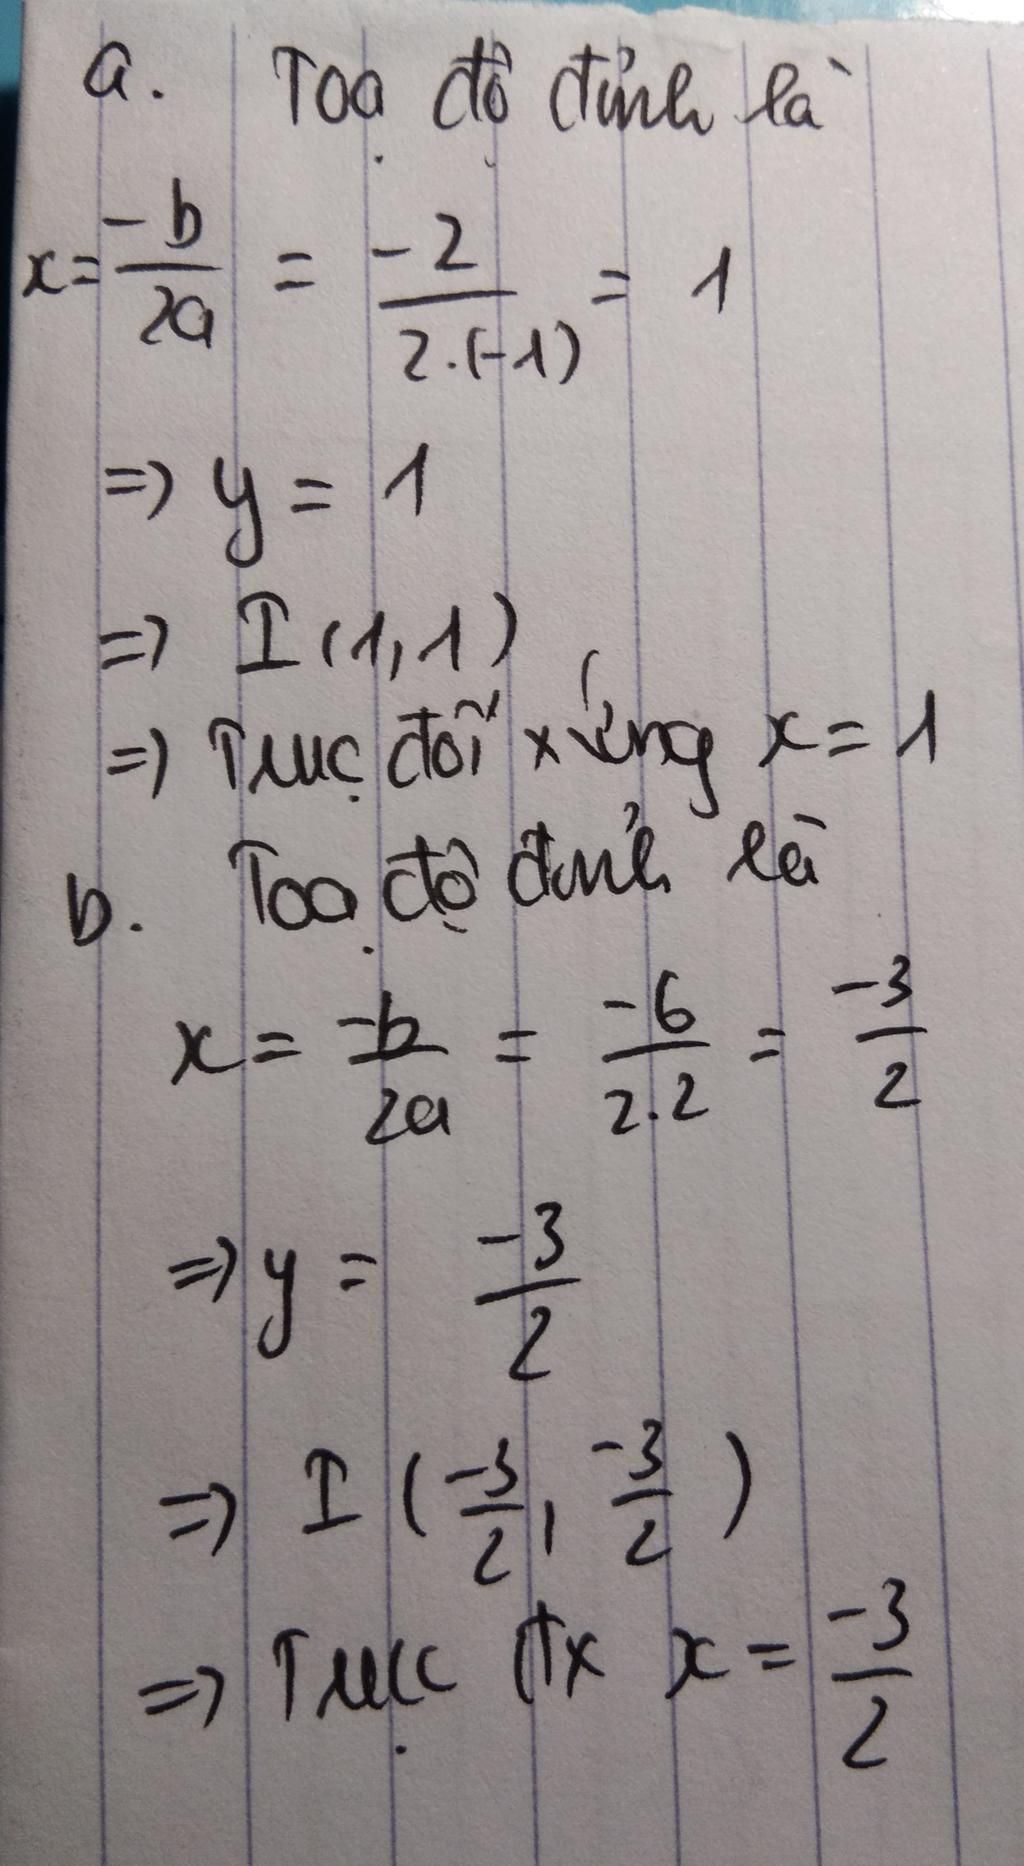 a. Toạ độ đỉnh là
x = -b/2a = -2/2.(-1) = 1
=> y = 1
=> I (1,1)
=> Trục đối xứng x = 1
b. Toạ độ đỉnh là
x = -b/2a = -6/2.2 = -3/2
=> y = -3/2
=> I (-3/2, -3/2)
=> Trục đx x = -3/2